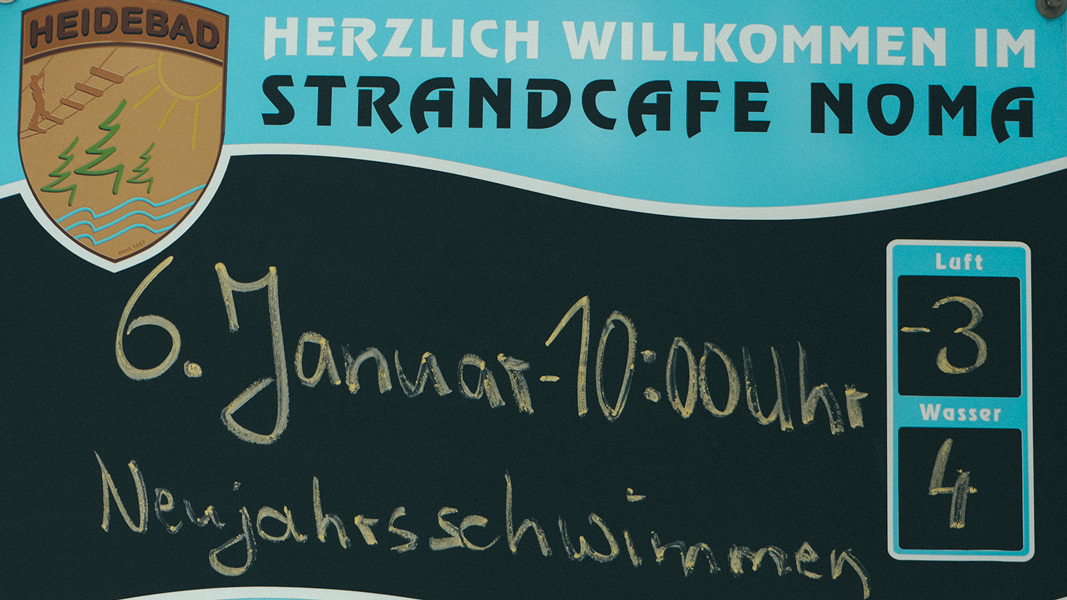 HEIDEBAD
HERZLICH WILLKOMMEN IM
STRANDCAFE NOMA
6. Januar-10:00Uhr
Neujahrsschwimmen
Luft
-3
Wasser
4